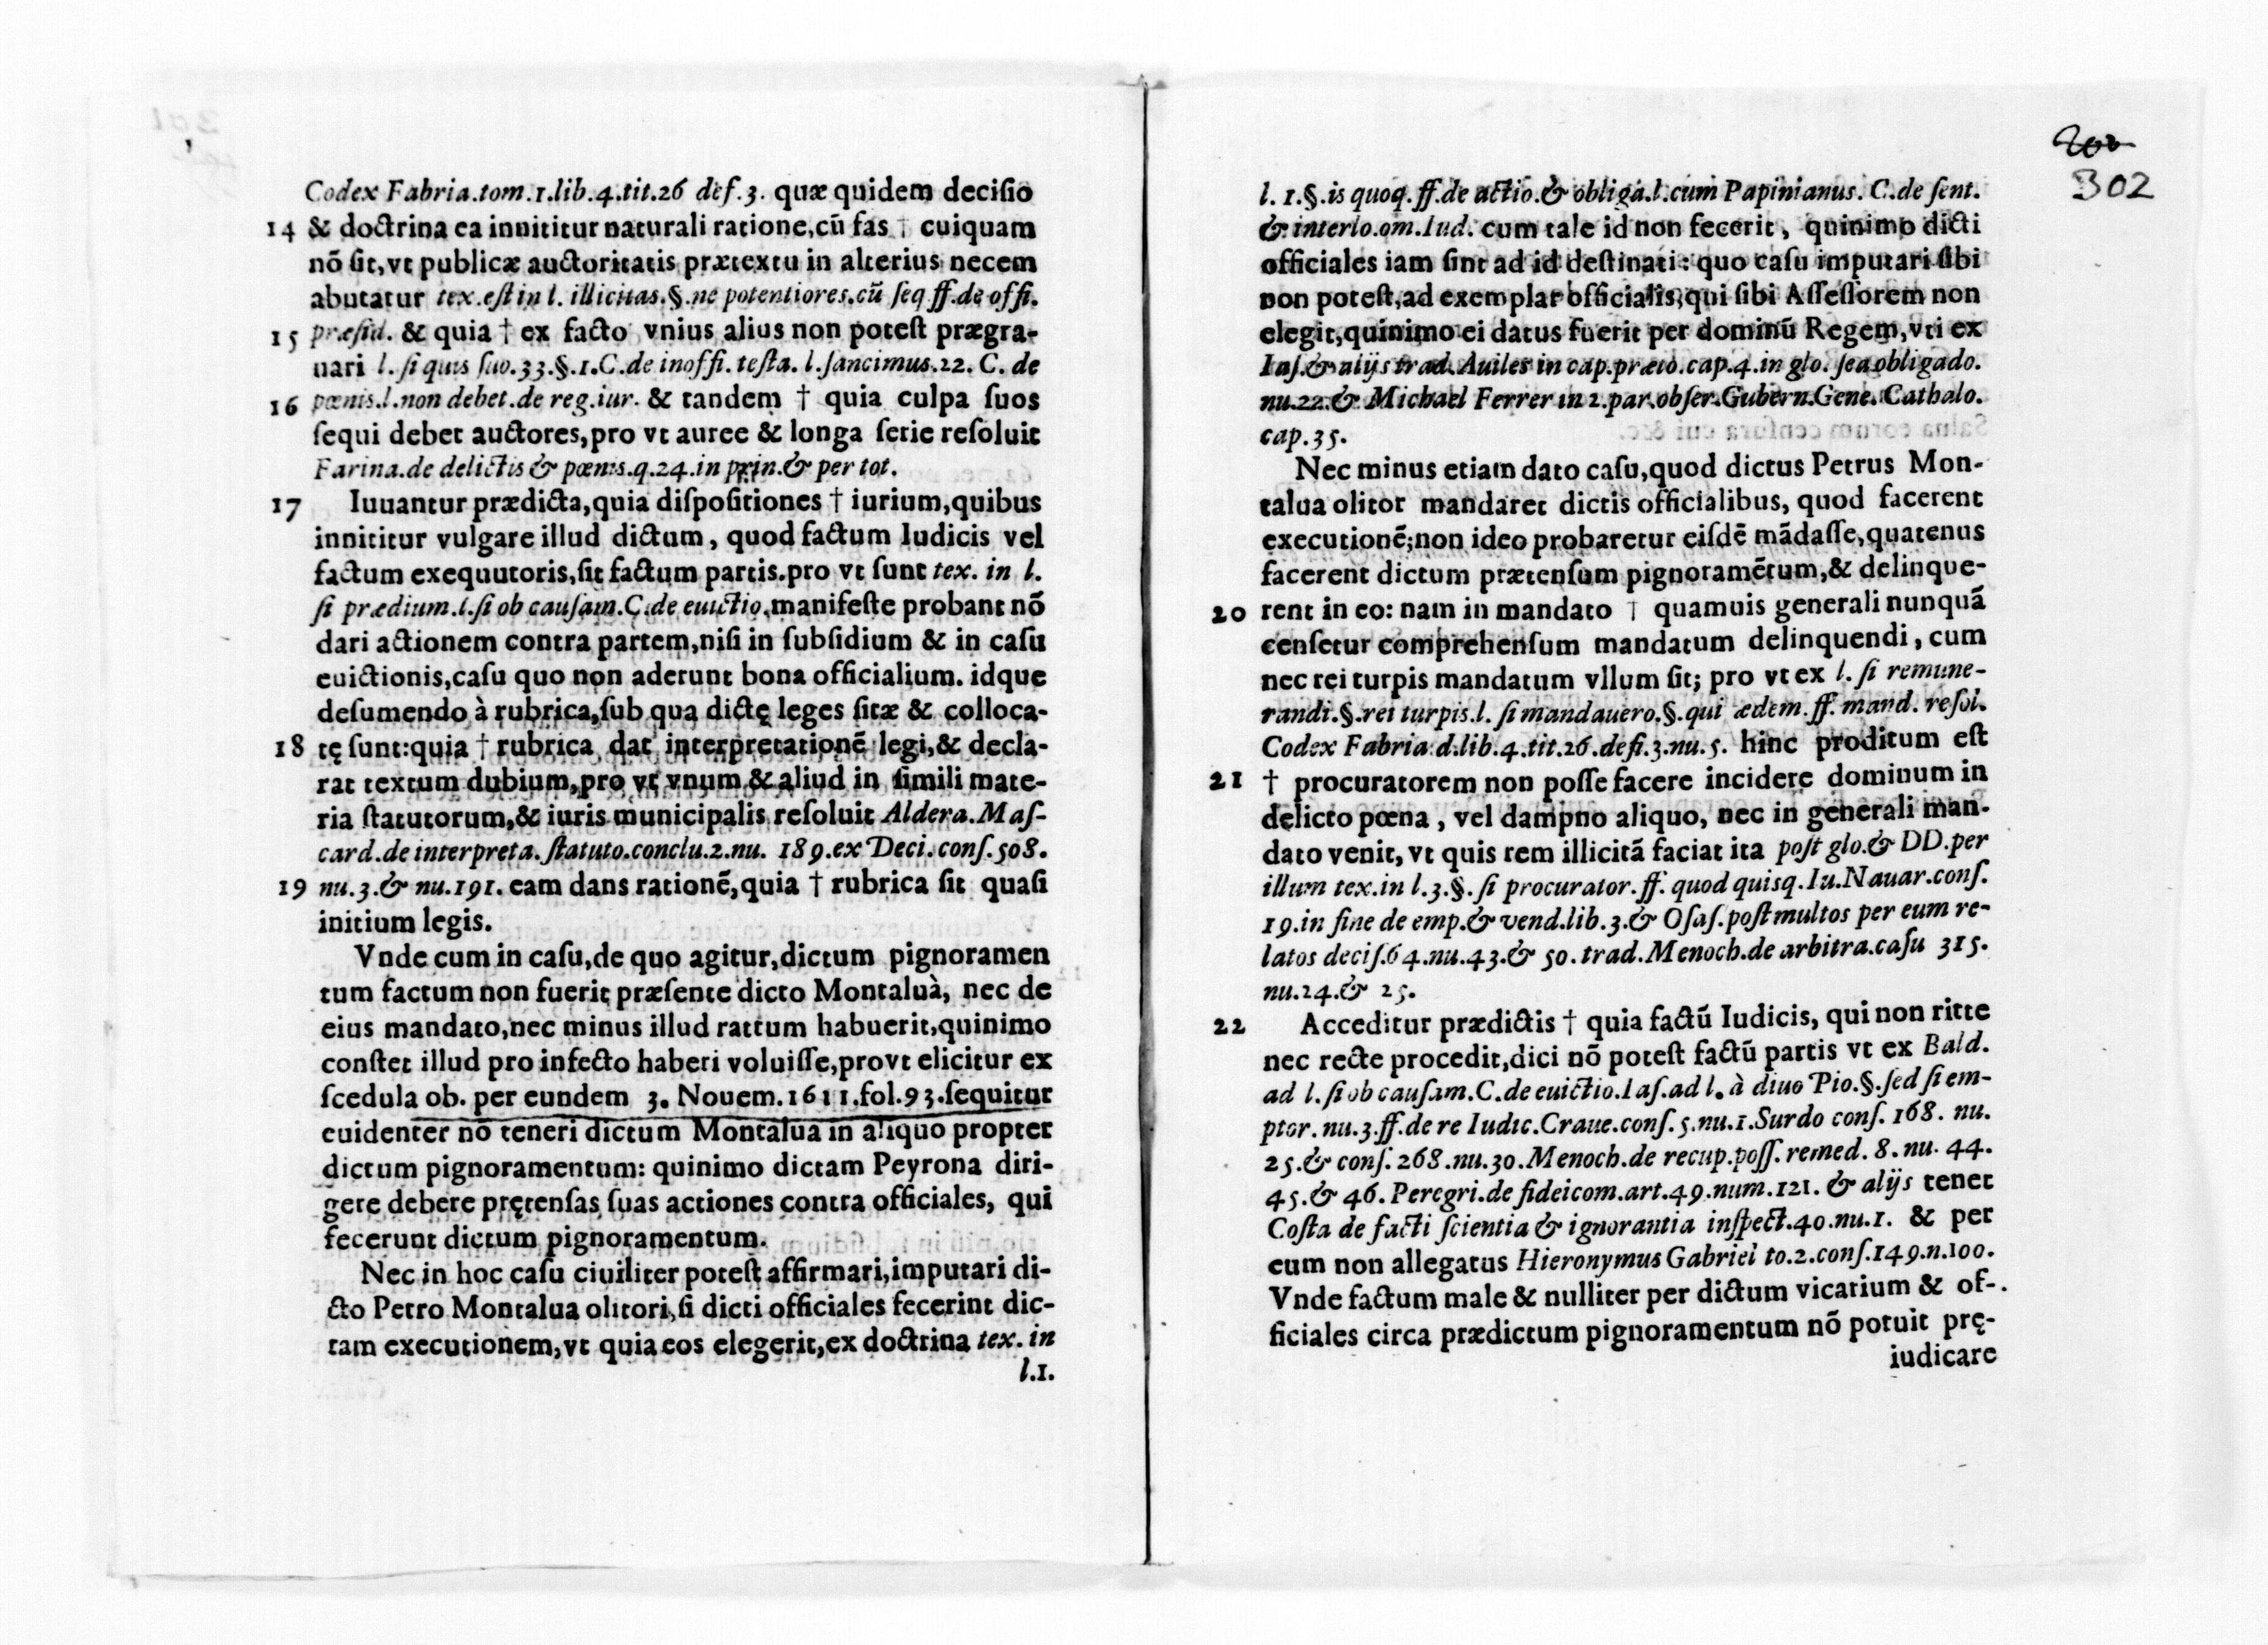 Codex Fabria.tom.1.lib.4.tit.26 def.3. quæ quidem decisio
14 & doctrina ea innititur naturali ratione,cũ fas † cuiquam
nõ sit,vt publicæ auctoritatis prætextu in alterius necem
abutatur tex.est in l. illicitas.§.ne potentiores.cũ seq ff.de offi.
15 præsid. & quia † ex facto vnius alius non potest prægra-
uari l. si quis suo.33.§.1.C.de inoffi. testa. l.sancimus.22. C. de
16 pœnis.l.non debet.de reg.iur. & tandem † quia culpa suos
sequi debet auctores,pro vt auree & longa serie resoluit
Farina.de delictis & pœnis.q.24.in prin.& per tot.
17 Iuuantur prædicta,quia dispositiones † iurium,quibus
innititur vulgare illud dictum, quod factum Iudicis vel
factum exequutoris,sit factum partis.pro vt sunt tex. in l.
si prædium.l.si ob causam.C.de euictio.manifeste probant nõ
dari actionem contra partem,nisi in subsidium & in casu
euictionis,casu quo non aderunt bona officialium. idque
desumendo à rubrica,sub qua dictę leges sitæ & colloca-
18 tę sunt:quia † rubrica dat interpretationẽ legi,& decla-
rat textum dubium,pro vt vnum & aliud in simili mate-
ria statutorum,& iuris municipalis resoluit Aldera.Mas-
card.de interpreta.statuto.conclu.2.nu. 189.ex Deci.cons.508.
19 nu.3.& nu.191. eam dans rationẽ,quia † rubrica sit quasi
initium legis.
Vnde cum in casu,de quo agitur,dictum pignoramen
tum factum non fuerit præsente dicto Montaluà, nec de
eius mandato,nec minus illud rattum habuerit,quinimo
constet illud pro infecto haberi voluisse,provt elicitur ex
scedula ob. per eundem 3. Nouem.1611.fol.93.sequitur
euidenter nõ teneri dictum Montalua in aliquo propter
dictum pignoramentum: quinimo dictam Peyrona diri-
gere debere prętensas suas actiones contra officiales, qui
fecerunt dictum pignoramentum.
Nec in hoc casu ciuiliter potest affirmari,imputari di-
cto Petro Montalua olitori,si dicti officiales fecerint dic-
tam executionem,vt quia eos elegerit,ex doctrina tex. in
l.1.
302
l. 1.§.is quoq.ff.de actio.& obliga.l.cum Papinianus. C.de sent.
& interlo.om.Iud. cum tale id non fecerit, quinimo dicti
officiales iam sint ad id destinati: quo casu imputari sibi
non potest,ad exemplar officialis,qui sibi Assessorem non
elegit,quinimo ei datus fuerit per dominũ Regem,vti ex
Ias.& alijs trad.Auiles in cap.præto.cap.4.in glo. sea obligado.
nu.22.& Michael Ferrer in 2.par.obser.Gubern.Gene.Cathalo.
cap.35.
Nec minus etiam dato casu,quod dictus Petrus Mon-
talua olitor mandaret dictis officialibus, quod facerent
executionẽ;non ideo probaretur eisdẽ mãdasse,quatenus
facerent dictum prætensum pignoramẽtum,& delinque-
20 rent in eo: nam in mandato † quamuis generali nunquã
censetur comprehensum mandatum delinquendi, cum
nec rei turpis mandatum vllum sit; pro vt ex l. si remune-
randi.§.rei turpis.l. si mandauero.§.qui ædem.ff. mand. resol.
Codex Fabria.d.lib.4.tit.26.defi.3.nu.5. hinc proditum est
21 † procuratorem non posse facere incidere dominum in
delicto pœna, vel dampno aliquo, nec in generali man-
dato venit, vt quis rem illicitã faciat ita post glo.& DD.per
illum tex.in l.3.§. si procurator.ff. quod quisq.Iu.Nauar.cons.
19.in fine de emp.& vend.lib.3.& Osas.post multos per eum re-
latos decis.64.nu.43.& 50.trad.Menoch.de arbitra.casu 315.
nu.24.& 25.
22 Acceditur prædictis † quia factũ Iudicis, qui non ritte
nec recte procedit,dici nõ potest factũ partis vt ex Bald.
ad l. si ob causam.C.de euictio.Ias.ad l. à diuo Pio.§.sed si em-
ptor. nu.3.ff.de re Iudic.Craue.cons.5.nu.1.Surdo cons.168. nu.
25.& cons.268.nu.30.Menoch.de recup.poss. remed. 8. nu. 44.
45.& 46. Peregri.de fideicom.art.49.num.121. & alijs tenet
Costa de facti scientia & ignorantia inspect.40.nu.1. & per
eum non allegatus Hieronymus Gabriel to.2.cons.149.n.100.
Vnde factum male & nulliter per dictum vicarium & of-
ficiales circa prædictum pignoramentum nõ potuit prę-
iudicare